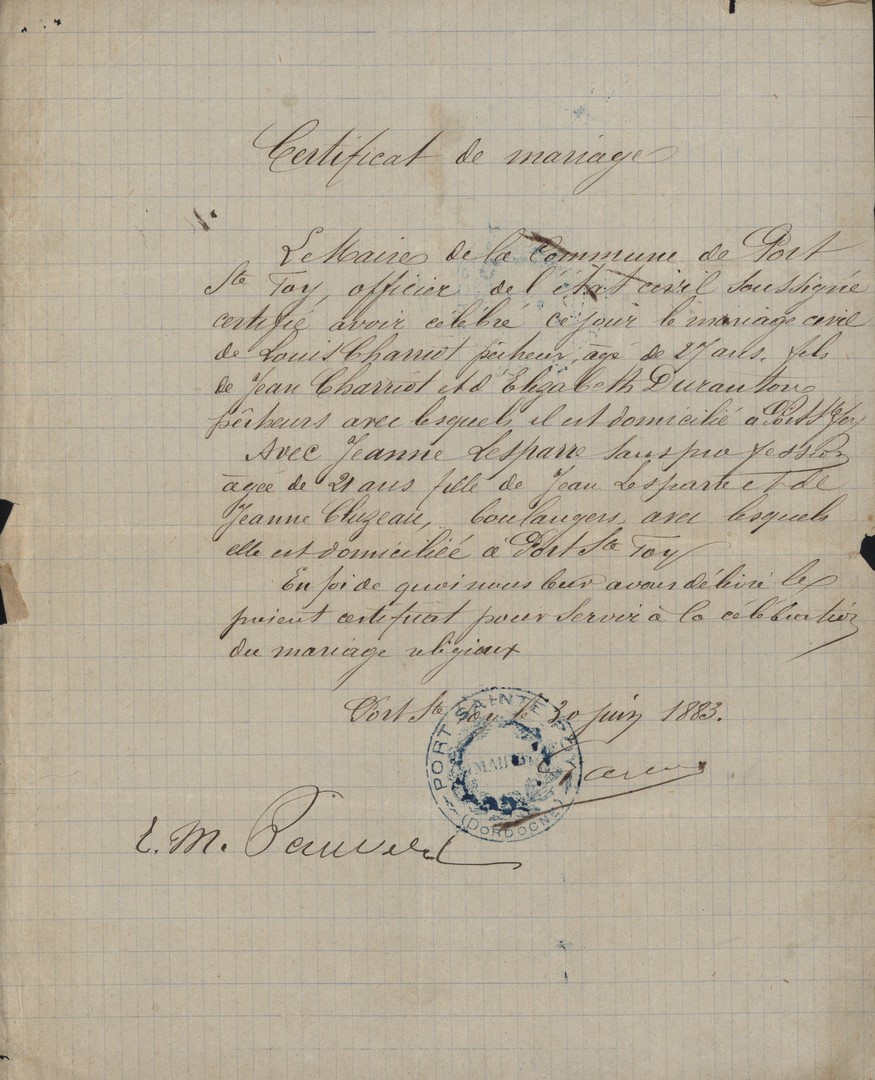 Certificat de mariage
Le Maire de la Commune de Port
Ste Foy, officier de l'état civil soussigné
certifié avoir célébré ce jour le mariage civil
de Louis Charriot pêcheur, âgé de 27 ans. fils
de Jean Charriot et d'Elizabeth Duranton
pêcheurs avec lesquels il est domicilié à Port Ste Foy
Avec Jeanne Lesparre sans profession
âgée de 21 ans fille de Jean Lesparre et de
Jeanne Cluzeau, boulangers avec lesquels
elle est domiciliée à Port Ste Foy
En foi de quoi nous leur avons délivré le
présent certificat pour servir à la célébration
du mariage religieux
Port Ste Foy le 30 juin 1883.
PORT SAINTE FOY
MAIRIE
(DORDOGNE)
E. M.